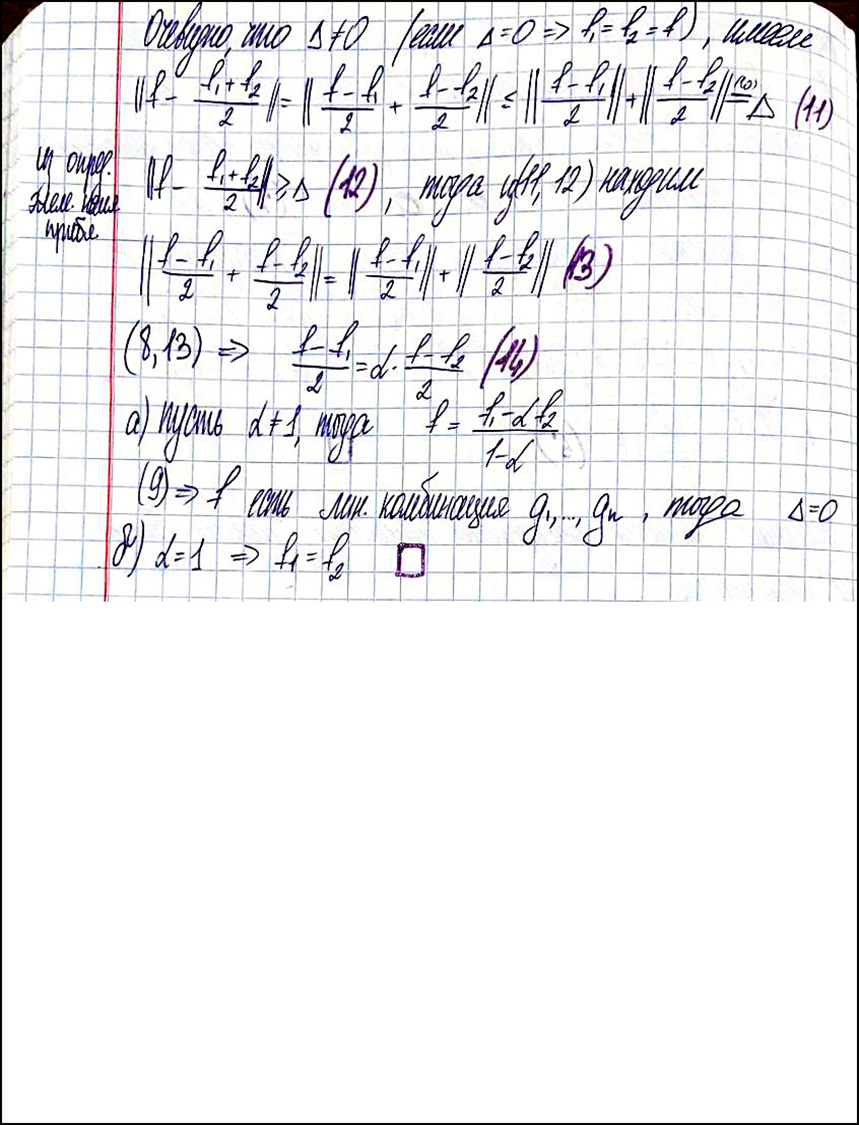 Очевидно, что Δ≠0 (если Δ=0 ⇒ f₁=f₂=f), имеем
‖f - (f₁+f₂)/2‖ = ‖(f-f₁)/2 + (f-f₂)/2‖ ≤ ‖(f-f₁)/2‖ + ‖(f-f₂)/2‖ (10)= Δ (11)
из опред.
элем. наил
прибл.
‖f - (f₁+f₂)/2‖ ≥ Δ (12), тогда из(11, 12) находим
‖(f-f₁)/2 + (f-f₂)/2‖ = ‖(f-f₁)/2‖ + ‖(f-f₂)/2‖ (13)
(8,13) ⇒ (f-f₁)/2 = α·(f-f₂)/2 (14)
а) пусть α≠1, тогда f = (f₁-αf₂)/(1-α)
(9) ⇒ f есть лин. комбинация g₁,..., gₙ, тогда Δ=0
б) α=1 ⇒ f₁=f₂ □